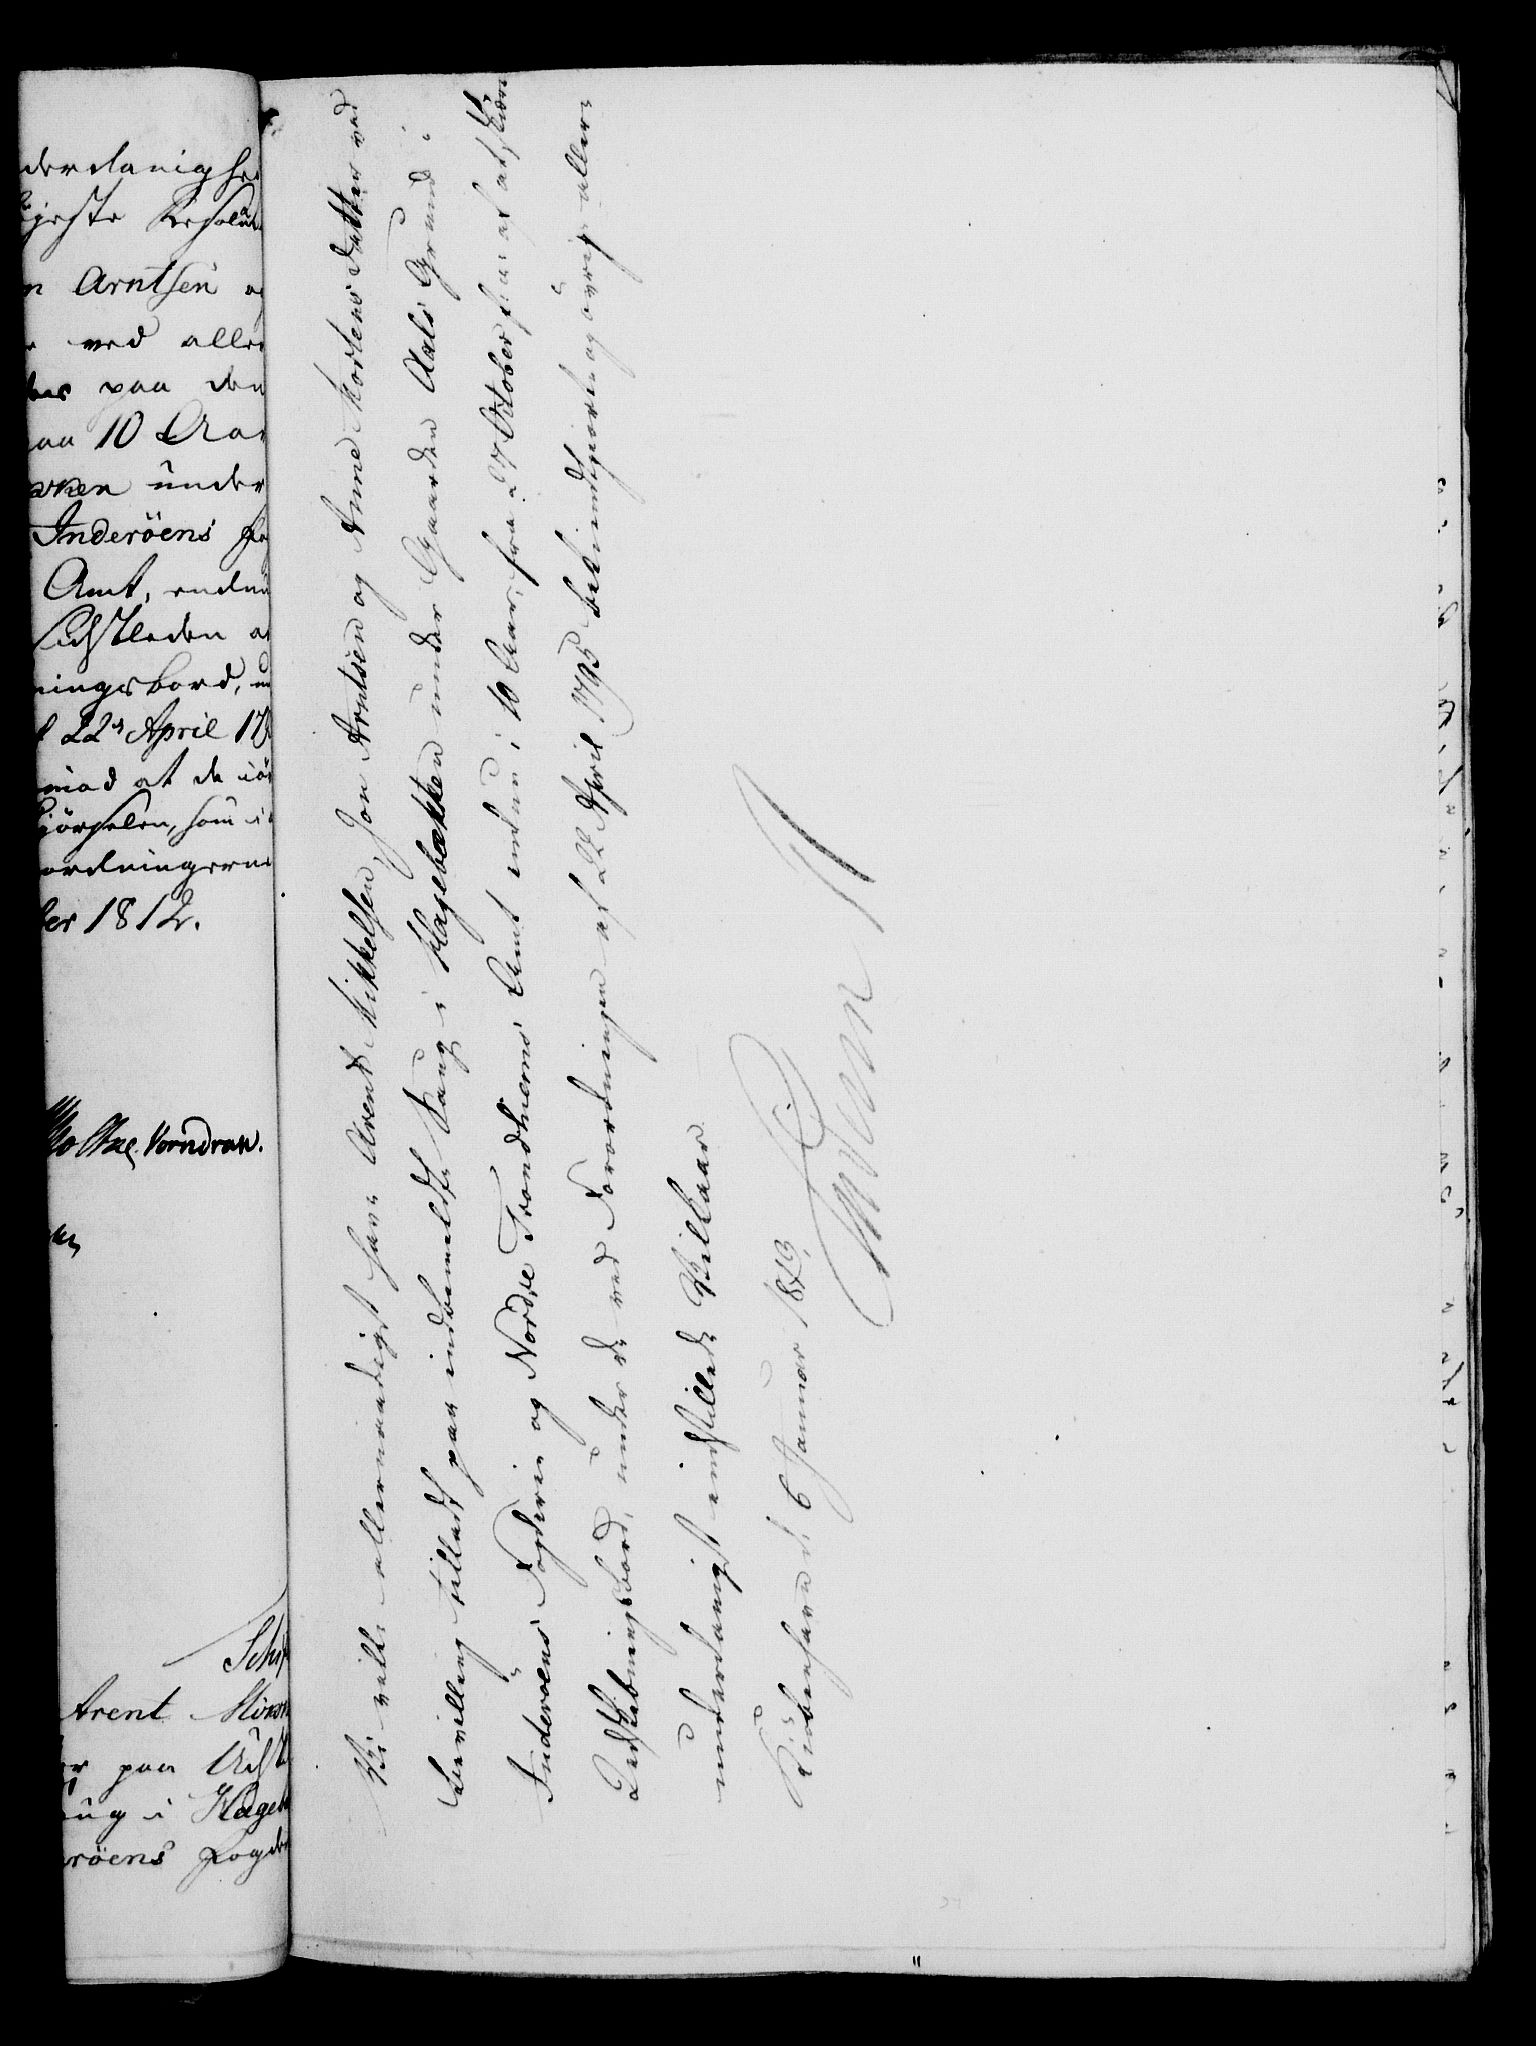 derdanighed
igste Resolu
n Arntsen og
ved aller
paa den
paa 10 Aar
under
Inderöens Fo
Amt, endnu
sidstleden at
ningsbord, un
22de April 179
mod at de
som i
ordningerne
ber 1812.
Moltke. Vorndran.
Schif
Arent
paa
ug i Hageb
röens Fogder
Vi ville allernaadigst have Arent Mikkelsen, Jon Arntsen og Anne Mortensdatter ved
Bevilling tilladt paa indbemeldte Saug i Hagebækken under Gaarden Aals Grund i
Inderöens Fogderie og Nordre Trondhiems Amt endnu i 10 Aar, fra 27 October f: a: af at skiære
Ladskibningsbord, under de ved Forordningen af 22 April 1795 bekiendtgiorte og övrige aller-
underdanigst indstillede Vilkaar.
Kiöbenhavn d: 6 Januar 1813.
Frederik R